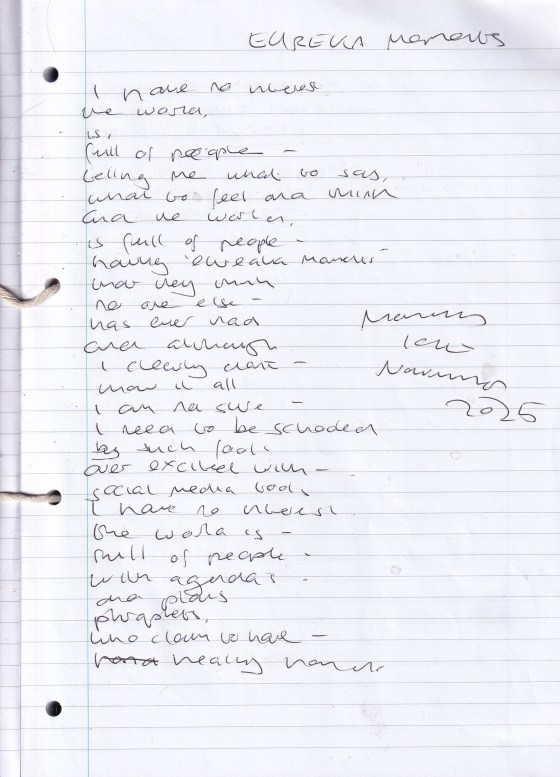 EUREKA Moments
I have no interest
the world,
is,
full of people -
telling me what to say,
what to feel and think
and the world,
is full of people -
having 'eureka moments'
that they think
no one else -
has ever had
and although
I clearly don't -
know it all
I am no sure -
I need to be schooled
by such fools
over excited with -
social media tools
I have no interest
the world is -
full of people -
with agendas -
and plans
prophets,
who claim to have -
healing hands
Monday
10th
November
2025